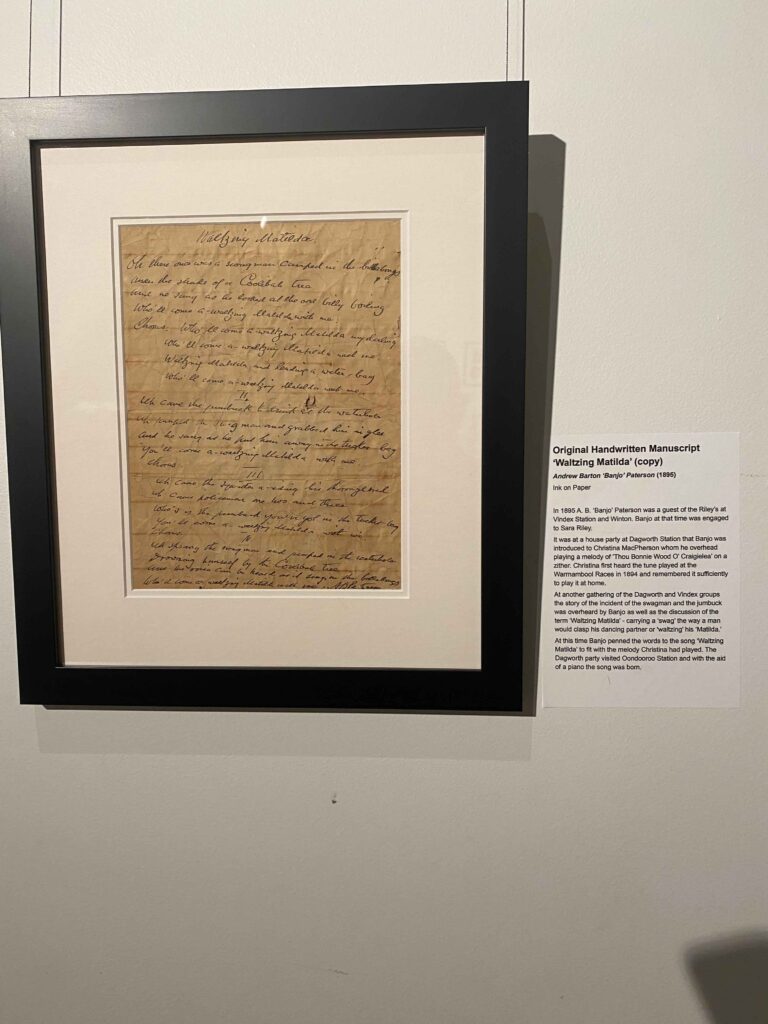 Waltzing Matilda
Oh there once was a swagman camped in the billabongs
Under the shade of a Coolibah tree
And he sang as he looked at the old billy boiling
Who'll come a-waltzing Matilda with me
Chorus. Who'll come a-waltzing Matilda my darling
Who'll come a-waltzing Matilda with me
Waltzing Matilda and leading a water-bag
Who'll come a-waltzing Matilda with me
II
Up came the jumbuck to drink at the waterhole
Up jumped the swagman and grabbed him in glee
And he sang as he put him away in the tucker bag
You'll come a-waltzing Matilda with me
Chorus
III
Up came the squatter a-riding his thoroughbred
Up came policemen one two and three
Who's is the jumbuck you've got in the tucker bag
You'll come a-waltzing Matilda with me
Chorus
IV
Up sprang the swagman and jumped in the waterhole
Drowning himself by the Coolibah tree
And his voice can be heard as it sings in the billabongs
Who'll come a-waltzing Matilda with me
Original Handwritten Manuscript
'Waltzing Matilda' (copy)
Andrew Barton 'Banjo' Paterson (1895)
Ink on Paper
In 1895 A. B. 'Banjo' Paterson was a guest of the Riley's at
Vindex Station and Winton. Banjo at that time was engaged
to Sara Riley.
It was at a house party at Dagworth Station that Banjo was
introduced to Christina MacPherson whom he overheard
playing a melody of 'Thou Bonnie Wood O' Craigielea' on a
zither. Christina first heard the tune played at the
Warrnambool Races in 1894 and remembered it sufficiently
to play it at home.
At another gathering of the Dagworth and Vindex groups
the story of the incident of the swagman and the jumbuck
was overheard by Banjo as well as the discussion of the
term 'Waltzing Matilda' - carrying a 'swag' the way a man
would clasp his dancing partner or 'waltzing' his 'Matilda.'
At this time Banjo penned the words to the song 'Waltzing
Matilda' to fit with the melody Christina had played. The
Dagworth party visited Oondooroo Station and with the aid
of a piano the song was born.